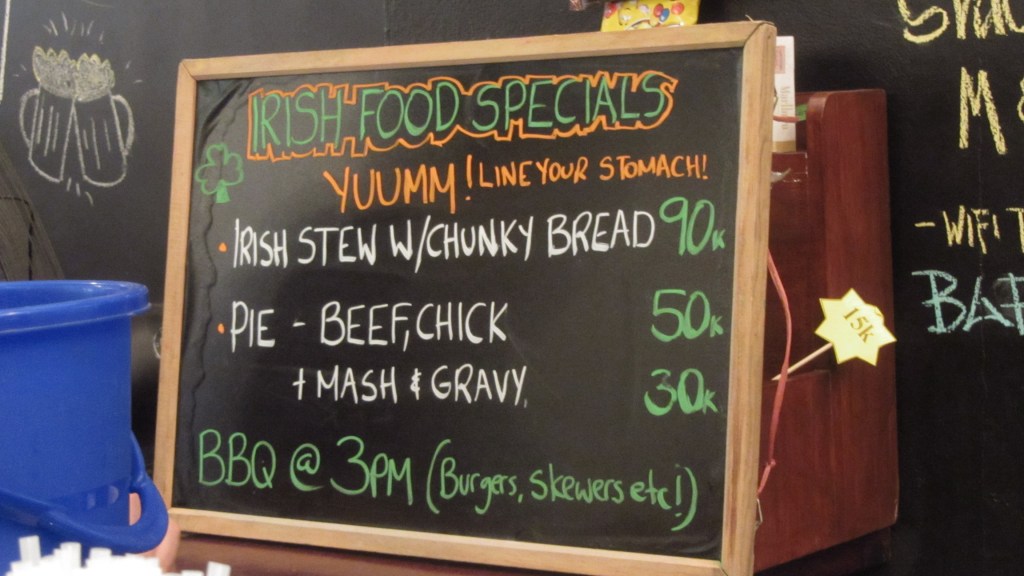 IRISH FOOD SPECIALS
YUUMM! LINE YOUR STOMACH!
· IRISH STEW W/CHUNKY BREAD 90K
· PIE - BEEF, CHICK 50K
+ MASH & GRAVY 30K
BBQ @ 3PM (Burgers, Skewers etc!)
15k
M &
- WIFI